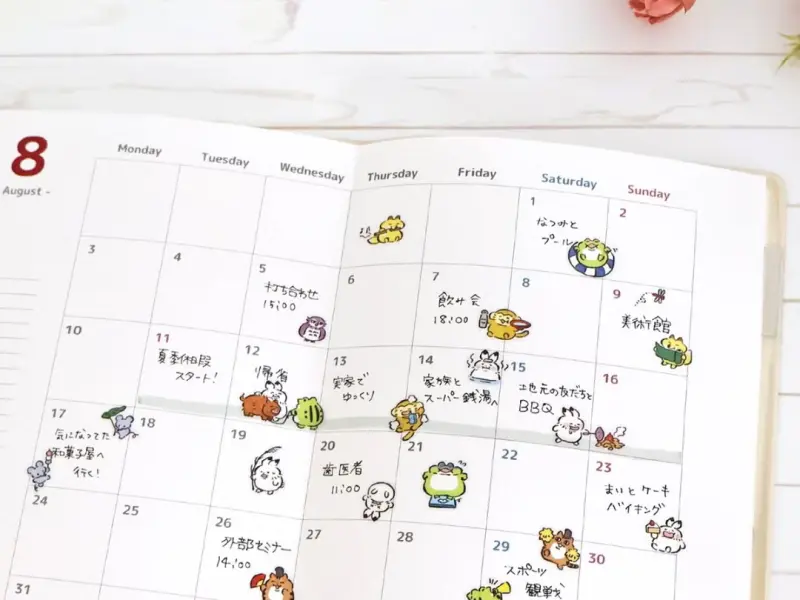 8
August -
Monday Tuesday Wednesday Thursday Friday Saturday Sunday
1
なつみと
プール
2
3
4
5
打ち合わせ
15:00
6
7
飲み会
18:00
8
9
美術館
10
11
夏季休暇
スタート!
12
帰省
13
実家で
ゆっくり
14
家族と
スーパー銭湯へ
15
地元の友だちと
BBQ
16
17
気になってた
和菓子屋へ
行く!
18
19
20
歯医者
11:00
21
22
23
まいとケーキ
バイキング
24
25
26
外部セミナー
14:00
27
28
29
スポーツ
観戦
30
31